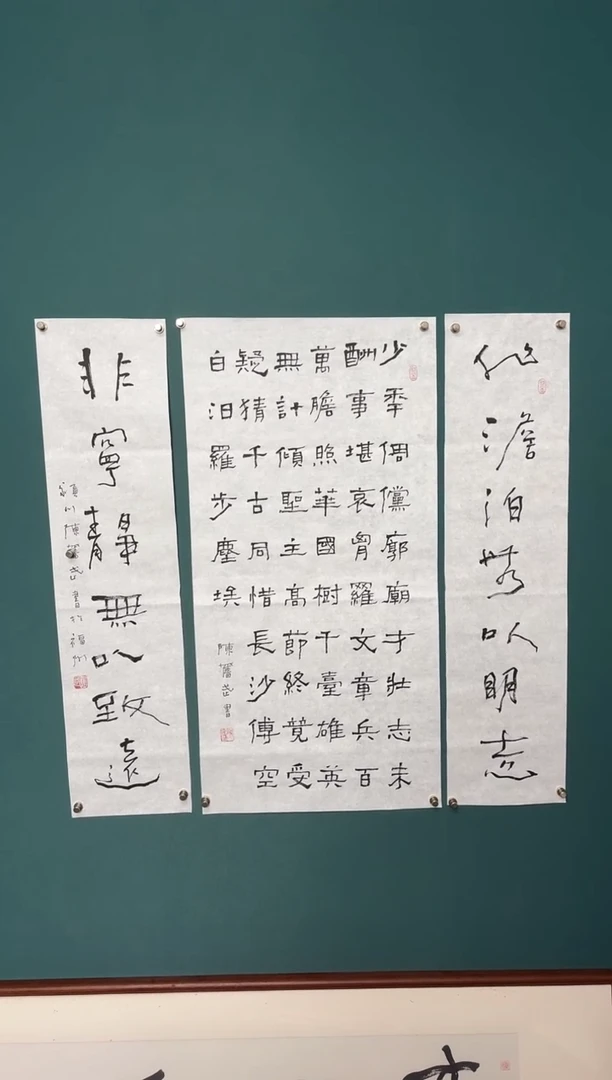 非澹泊無以明志
少秊倜儻廊廟才壯志未
酬事堪哀胷羅文章兵百
萬膽照華國樹千臺雄英
無計傾聖主高節終竟受
疑猜千古同惜長沙傅空
白汨羅步塵埃
陳奮武書
非寧靜無以致遠
潁川陳奮武書於福州